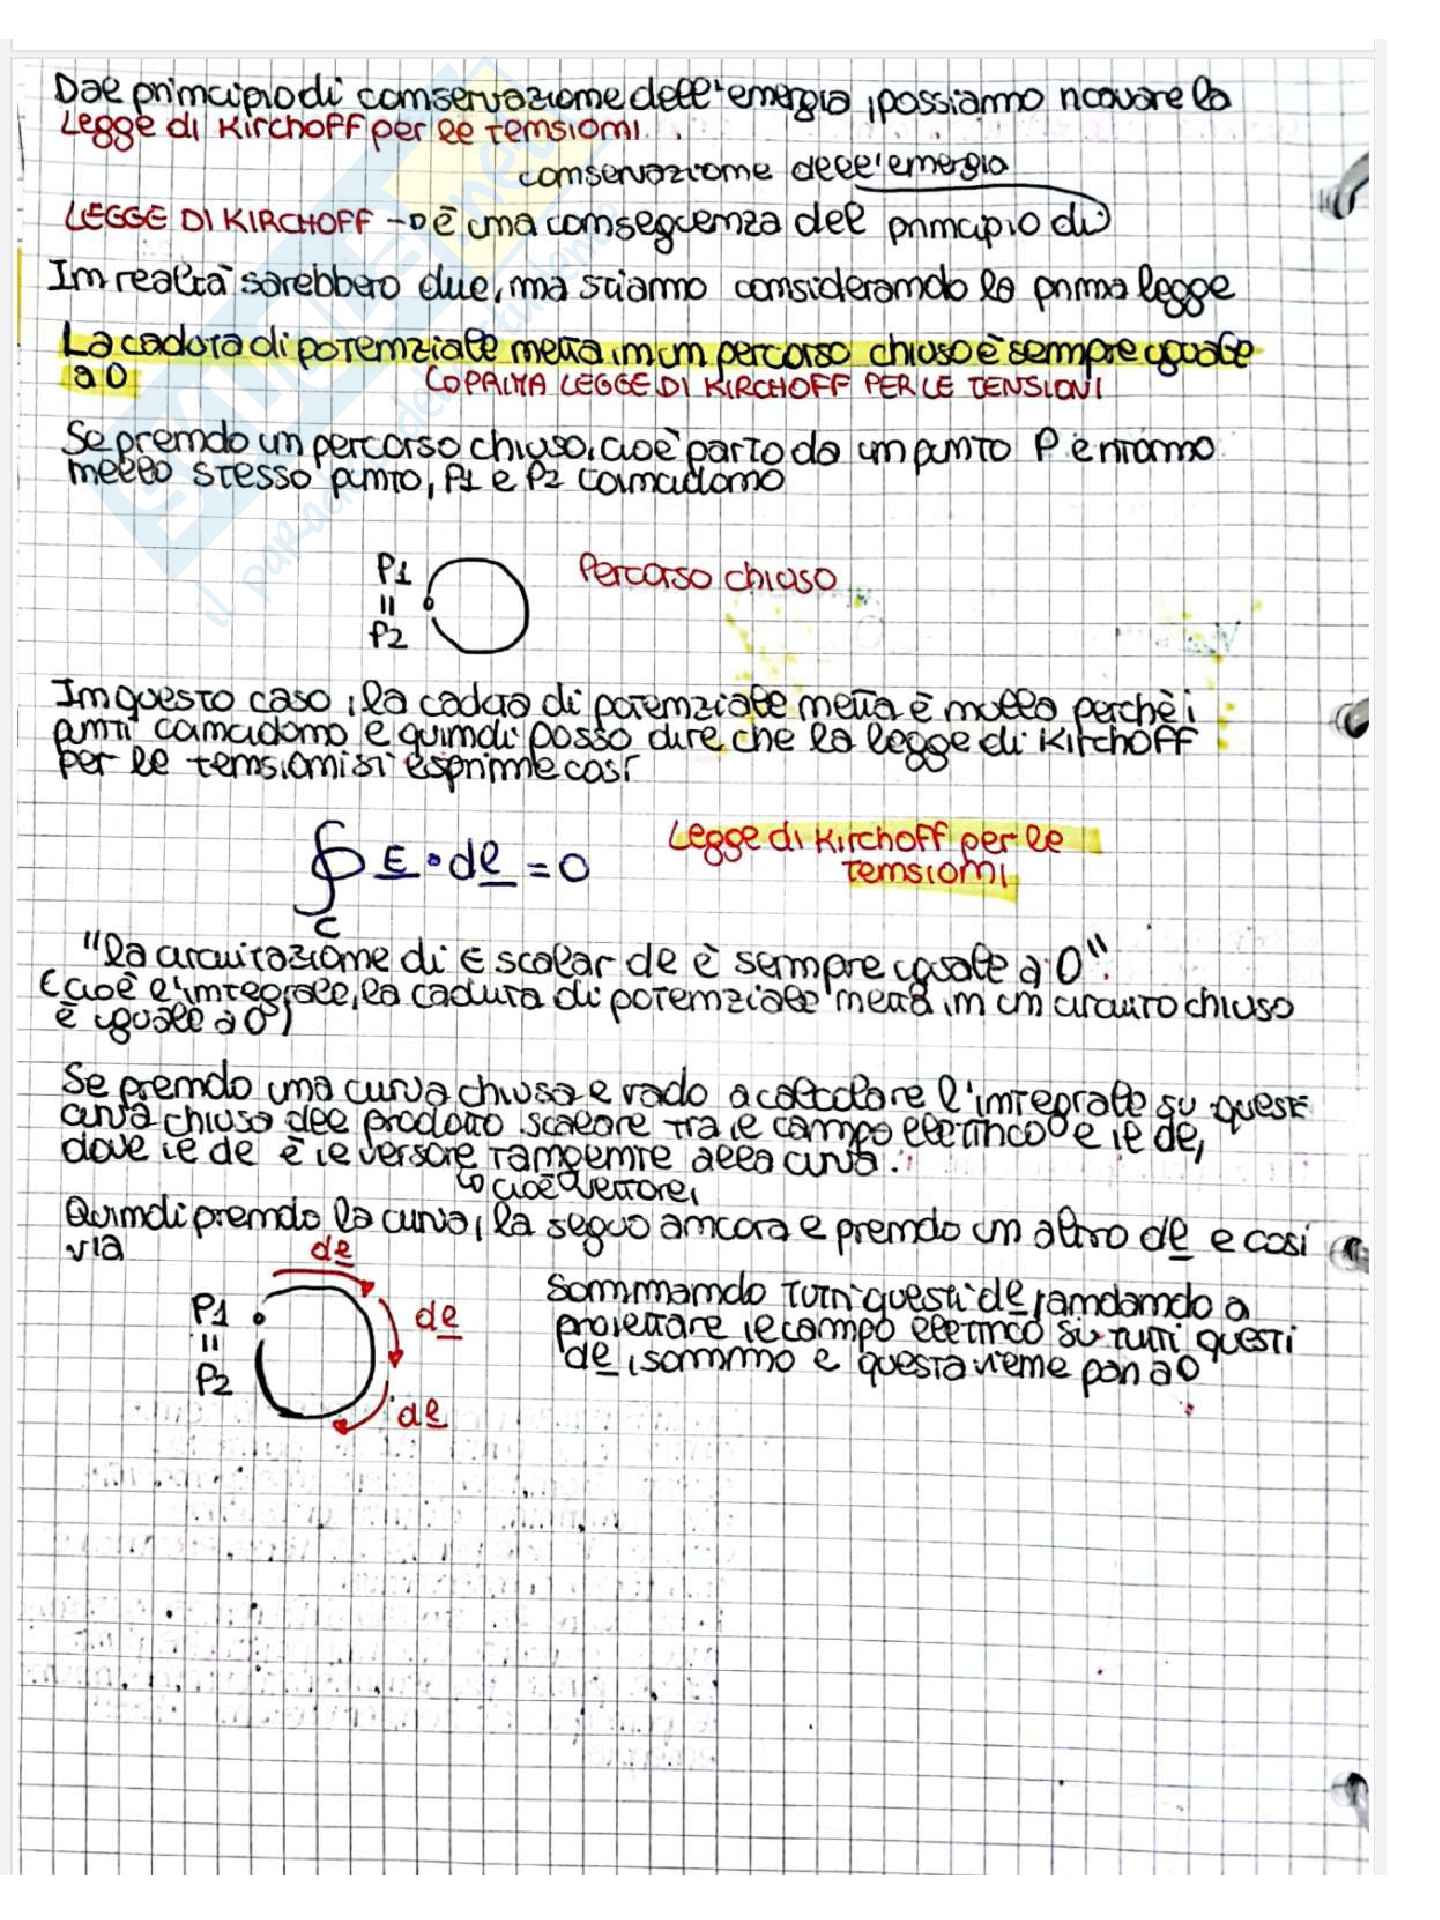 Dal principio di conservazione dell'energia, possiamo ricavare la
Legge di Kirchoff per le tensioni.
conservazione dell'energia
LEGGE DI KIRCHOFF → è una conseguenza del principio di
In realtà sarebbero due, ma stiamo considerando la prima legge
La caduta di potenziale netta in un percorso chiuso è sempre uguale
a 0
(O PRIMA LEGGE DI KIRCHOFF PER LE TENSIONI
Se prendo un percorso chiuso, cioè parto da un punto P e ritorno
nello stesso punto, P1 e P2 coincidono
P1
Percorso chiuso
=
P2
In questo caso, la caduta di potenziale netta è nulla perchè i
punti coincidono e quindi posso dire che la legge di Kirchoff
per le tensioni si esprime così
∮ E • dl = 0
C
Legge di Kirchoff per le
tensioni
"la circuitazione di E scalar dl è sempre uguale a 0"
(cioè l'integrale, la caduta di potenziale netta in un circuito chiuso
è uguale a 0)
Se prendo una curva chiusa e vado a calcolare l'integrale su questa
curva chiusa del prodotto scalare tra il campo elettrico e il dl,
dove il dl è il versore tangente alla curva.
↳ cioè vettore,
Quindi prendo la curva, la seguo ancora e prendo un altro dl e così
via
dl
P1
=
P2
dl
dl
Sommando tutti questi dl, andando a
proiettare il campo elettrico su tutti questi
dl, sommo e questa viene pari a 0